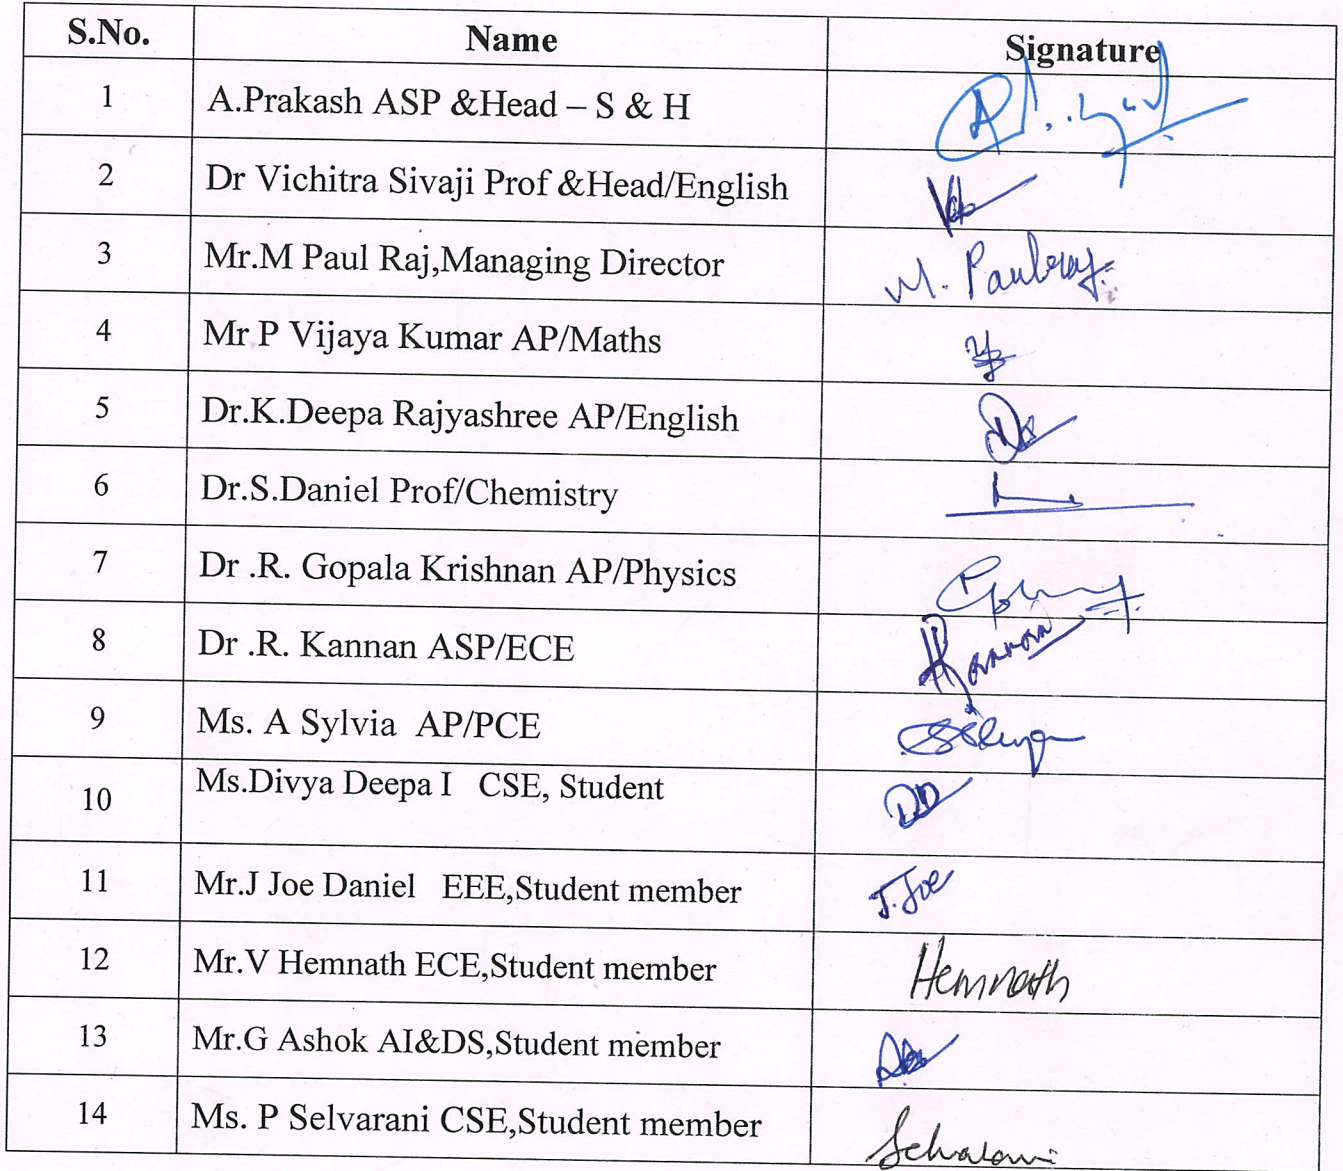 S.No. Name Signature
1 A.Prakash ASP &Head – S & H
2 Dr Vichitra Sivaji Prof &Head/English
3 Mr.M Paul Raj,Managing Director M. Paulraj
4 Mr.P Vijaya Kumar AP/Maths
5 Dr.K.Deepa Rajyashree AP/English
6 Dr.S.Daniel Prof/Chemistry
7 Dr .R. Gopala Krishnan AP/Physics
8 Dr .R. Kannan ASP/ECE RKannan
9 Ms. A Sylvia AP/PCE
10 Ms.Divya Deepa I CSE, Student DD
11 Mr.J Joe Daniel EEE,Student member J.Joe
12 Mr.V Hemnath ECE,Student member Hemnath
13 Mr.G Ashok AI&DS,Student member
14 Ms. P Selvarani CSE,Student member Selvarani